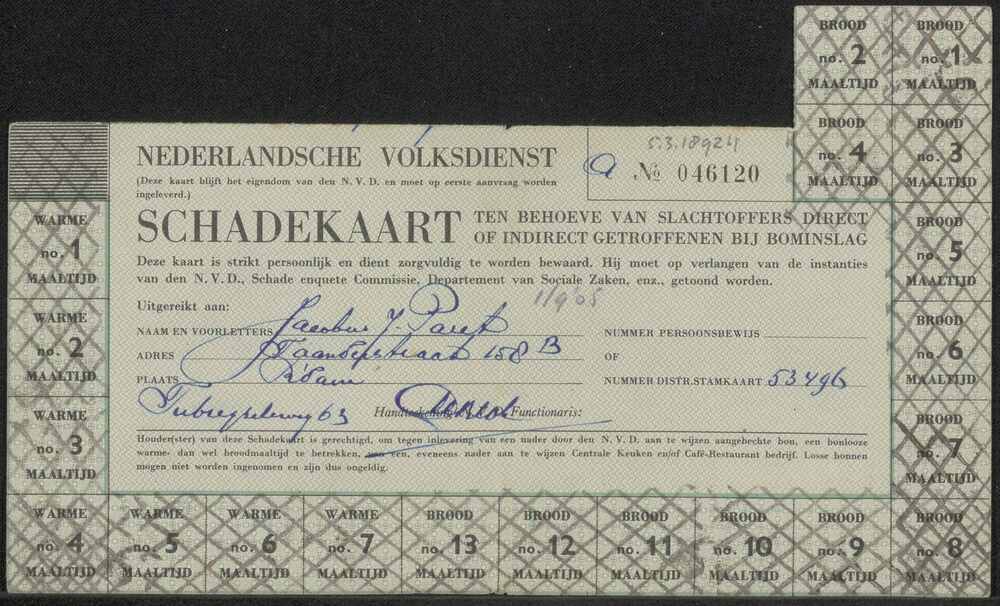 BROOD no. 2 MAALTIJD
BROOD no. 1 MAALTIJD
BROOD no. 4 MAALTIJD
BROOD no. 3 MAALTIJD
5.3.18924
NEDERLANDSCHE VOLKSDIENST
a № 046120
(Deze kaart blijft het eigendom van den N.V.D. en moet op eerste aanvraag worden
ingeleverd.)
SCHADEKAART TEN BEHOEVE VAN SLACHTOFFERS DIRECT
OF INDIRECT GETROFFENEN BIJ BOMINSLAG
Deze kaart is strikt persoonlijk en dient zorgvuldig te worden bewaard. Hij moet op verlangen van de instanties
van den N.V.D., Schade enquete Commissie, Departement van Sociale Zaken, enz., getoond worden.
Uitgereikt aan:
NAAM EN VOORLETTERS Jacobus J.
NUMMER PERSOONSBEWIJS
ADRES 158 B
OF
PLAATS R'dam
NUMMER DISTR.STAMKAART 53496
63 Handteekening Functionaris:
Houder(ster) van deze Schadekaart is gerechtigd, om tegen inlevering van een nader door den N.V.D. aan te wijzen aangehechte bon, een bonlooze
warme- dan wel broodmaaltijd te betrekken, aan een, eveneens nader aan te wijzen Centrale Keuken en/of Café-Restaurant bedrijf. Losse bonnen
mogen niet worden ingenomen en zijn dus ongeldig.
WARME no. 1 MAALTIJD
WARME no. 2 MAALTIJD
WARME no. 3 MAALTIJD
BROOD no. 5 MAALTIJD
BROOD no. 6 MAALTIJD
BROOD no. 7 MAALTIJD
WARME no. 4 MAALTIJD
WARME no. 5 MAALTIJD
WARME no. 6 MAALTIJD
WARME no. 7 MAALTIJD
BROOD no. 13 MAALTIJD
BROOD no. 12 MAALTIJD
BROOD no. 11 MAALTIJD
BROOD no. 10 MAALTIJD
BROOD no. 9 MAALTIJD
BROOD no. 8 MAALTIJD